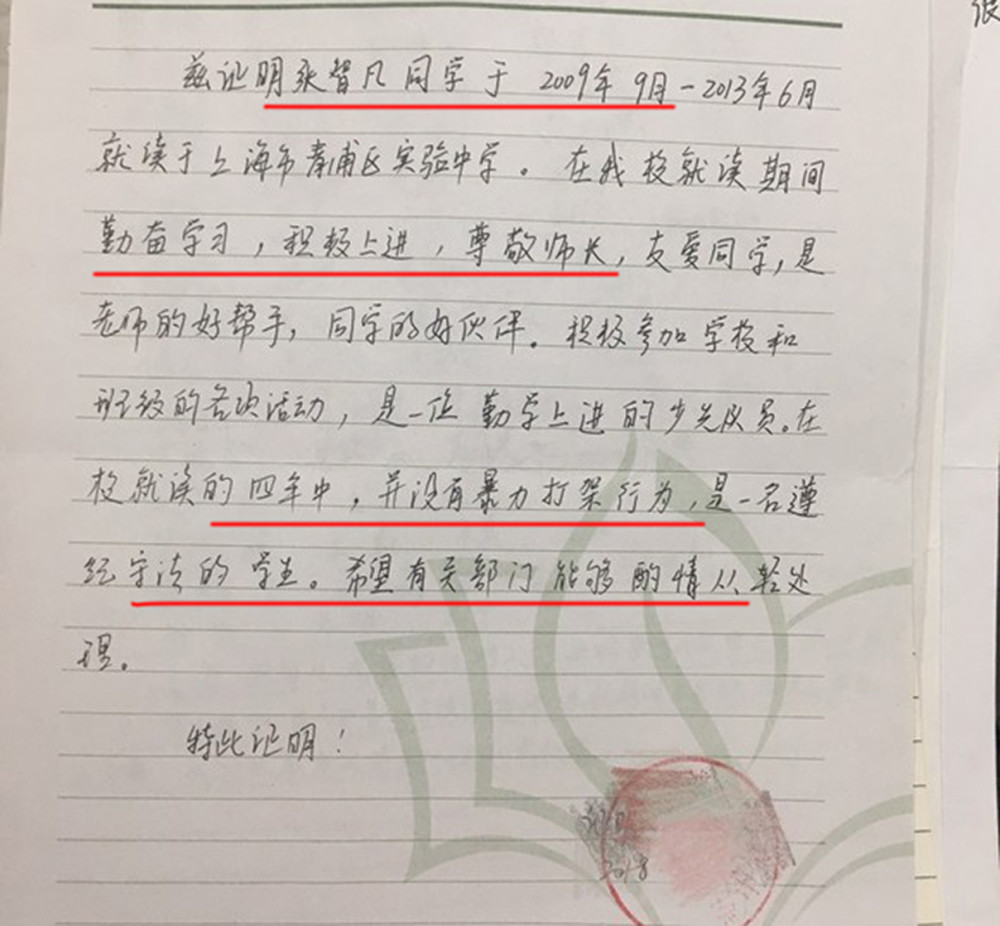 兹证明张智凡同学于2009年9月-2013年6月
就读于上海市青浦区实验中学。在我校就读期间
勤奋学习，积极上进，尊敬师长，友爱同学，是
老师的好帮手，同学的好伙伴。积极参加学校和
班级的各项活动，是一位勤学上进的少先队员。在
校就读的四年中，并没有暴力打架行为，是一名遵
纪守法的学生。希望有关部门能够酌情从轻处
理。
特此证明！
2018